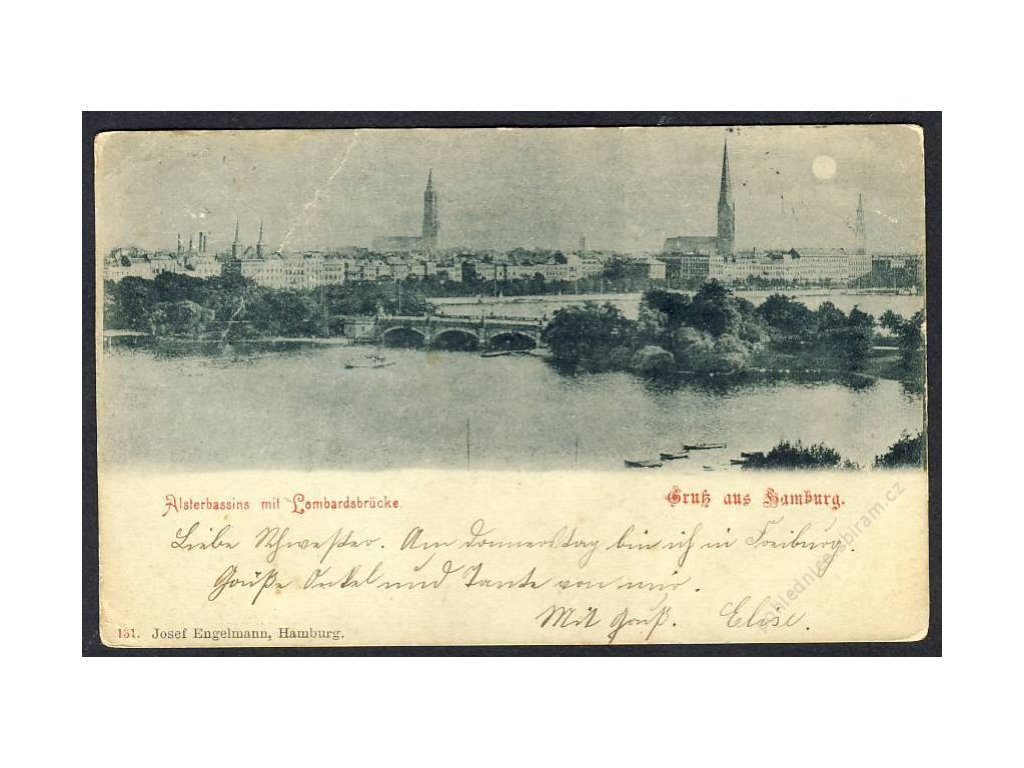 Alsterbassins mit Lombardsbrücke.
Gruß aus Hamburg.
Liebe Schwester. Am Donnerstag bin ich in Freiburg.
Grüße Onkel und Tante von mir.
Mit Gruß. Elise.
131. Josef Engelmann, Hamburg.
pohlednice-sbiram.cz